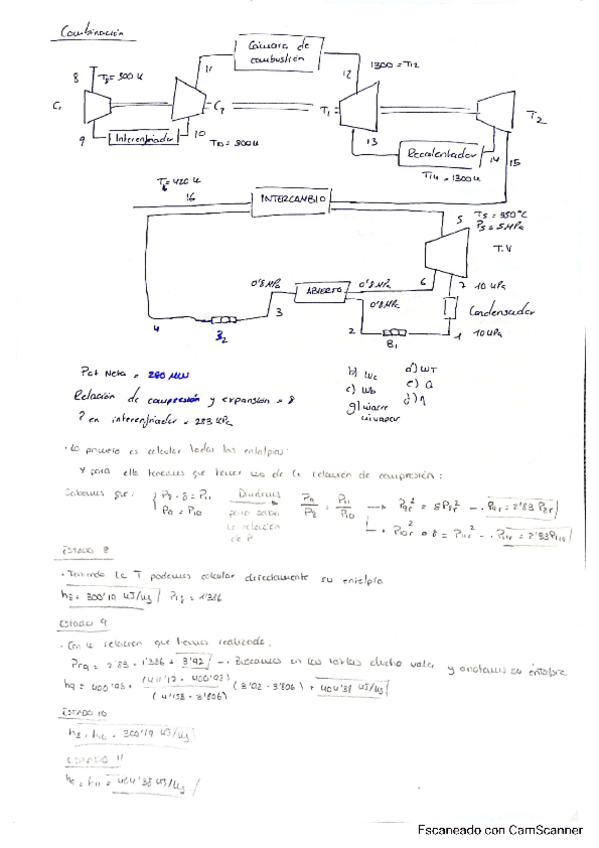 Combinación
Cámara de
combustión
11
12
1300 = T12
8
T8 = 300 K
C1
C2
T1
T2
9
Interenfriador
10
T10 = 300 K
13
Recalentador
14
15
T14 = 1300 K
T = 420 K
16
INTERCAMBIO
5
T5 = 350°C
P5 = 5 MPa
T.V
0'8 MPa
ABIERTO
0'8 MPa
6
7
10 kPa
0'8 MPa
Condensador
4
B2
3
2
B1
1
10 kPa
Pot Neta = 280 MW
Relación de compresión y expansión = 8
P en interenfriador = 283 kPa
b) Wc
a) WT
c) Wb
e) Q
g)
d) η
· Lo primero es calcular todas las entalpias.
Y para ello tenemos que hacer uso de la relación de compresión:
Sabemos que: P8 · 8 = P11
P9 = P10
Dividimos
para saber
la relación
de P
P9/P8 = P11/P10 → P9r² = 8P8r² → P9r = 2'83 P8r
P10r² · 8 = P11r² → P11r = 2'83 P10r
ESTADO 8
· Teniendo la T podemos calcular directamente su entalpia
h8 = 300'19 kJ/kg Pr8 = 1'386
ESTADO 9
· Con la relación que hemos realizado.
Pr9 = 2'83 · 1'386 = 3'92 → Buscamos en las tablas dicho valor y anotamos su entalpia
h9 = 400'98 + (411'12 - 400'98) / (4'153 - 3'806) (3'92 - 3'806) = 404'38 kJ/kg
ESTADO 10
h8 = h10 = 300'19 kJ/kg
ESTADO 11
h9 = h11 = 404'38 kJ/kg
Escaneado con CamScanner